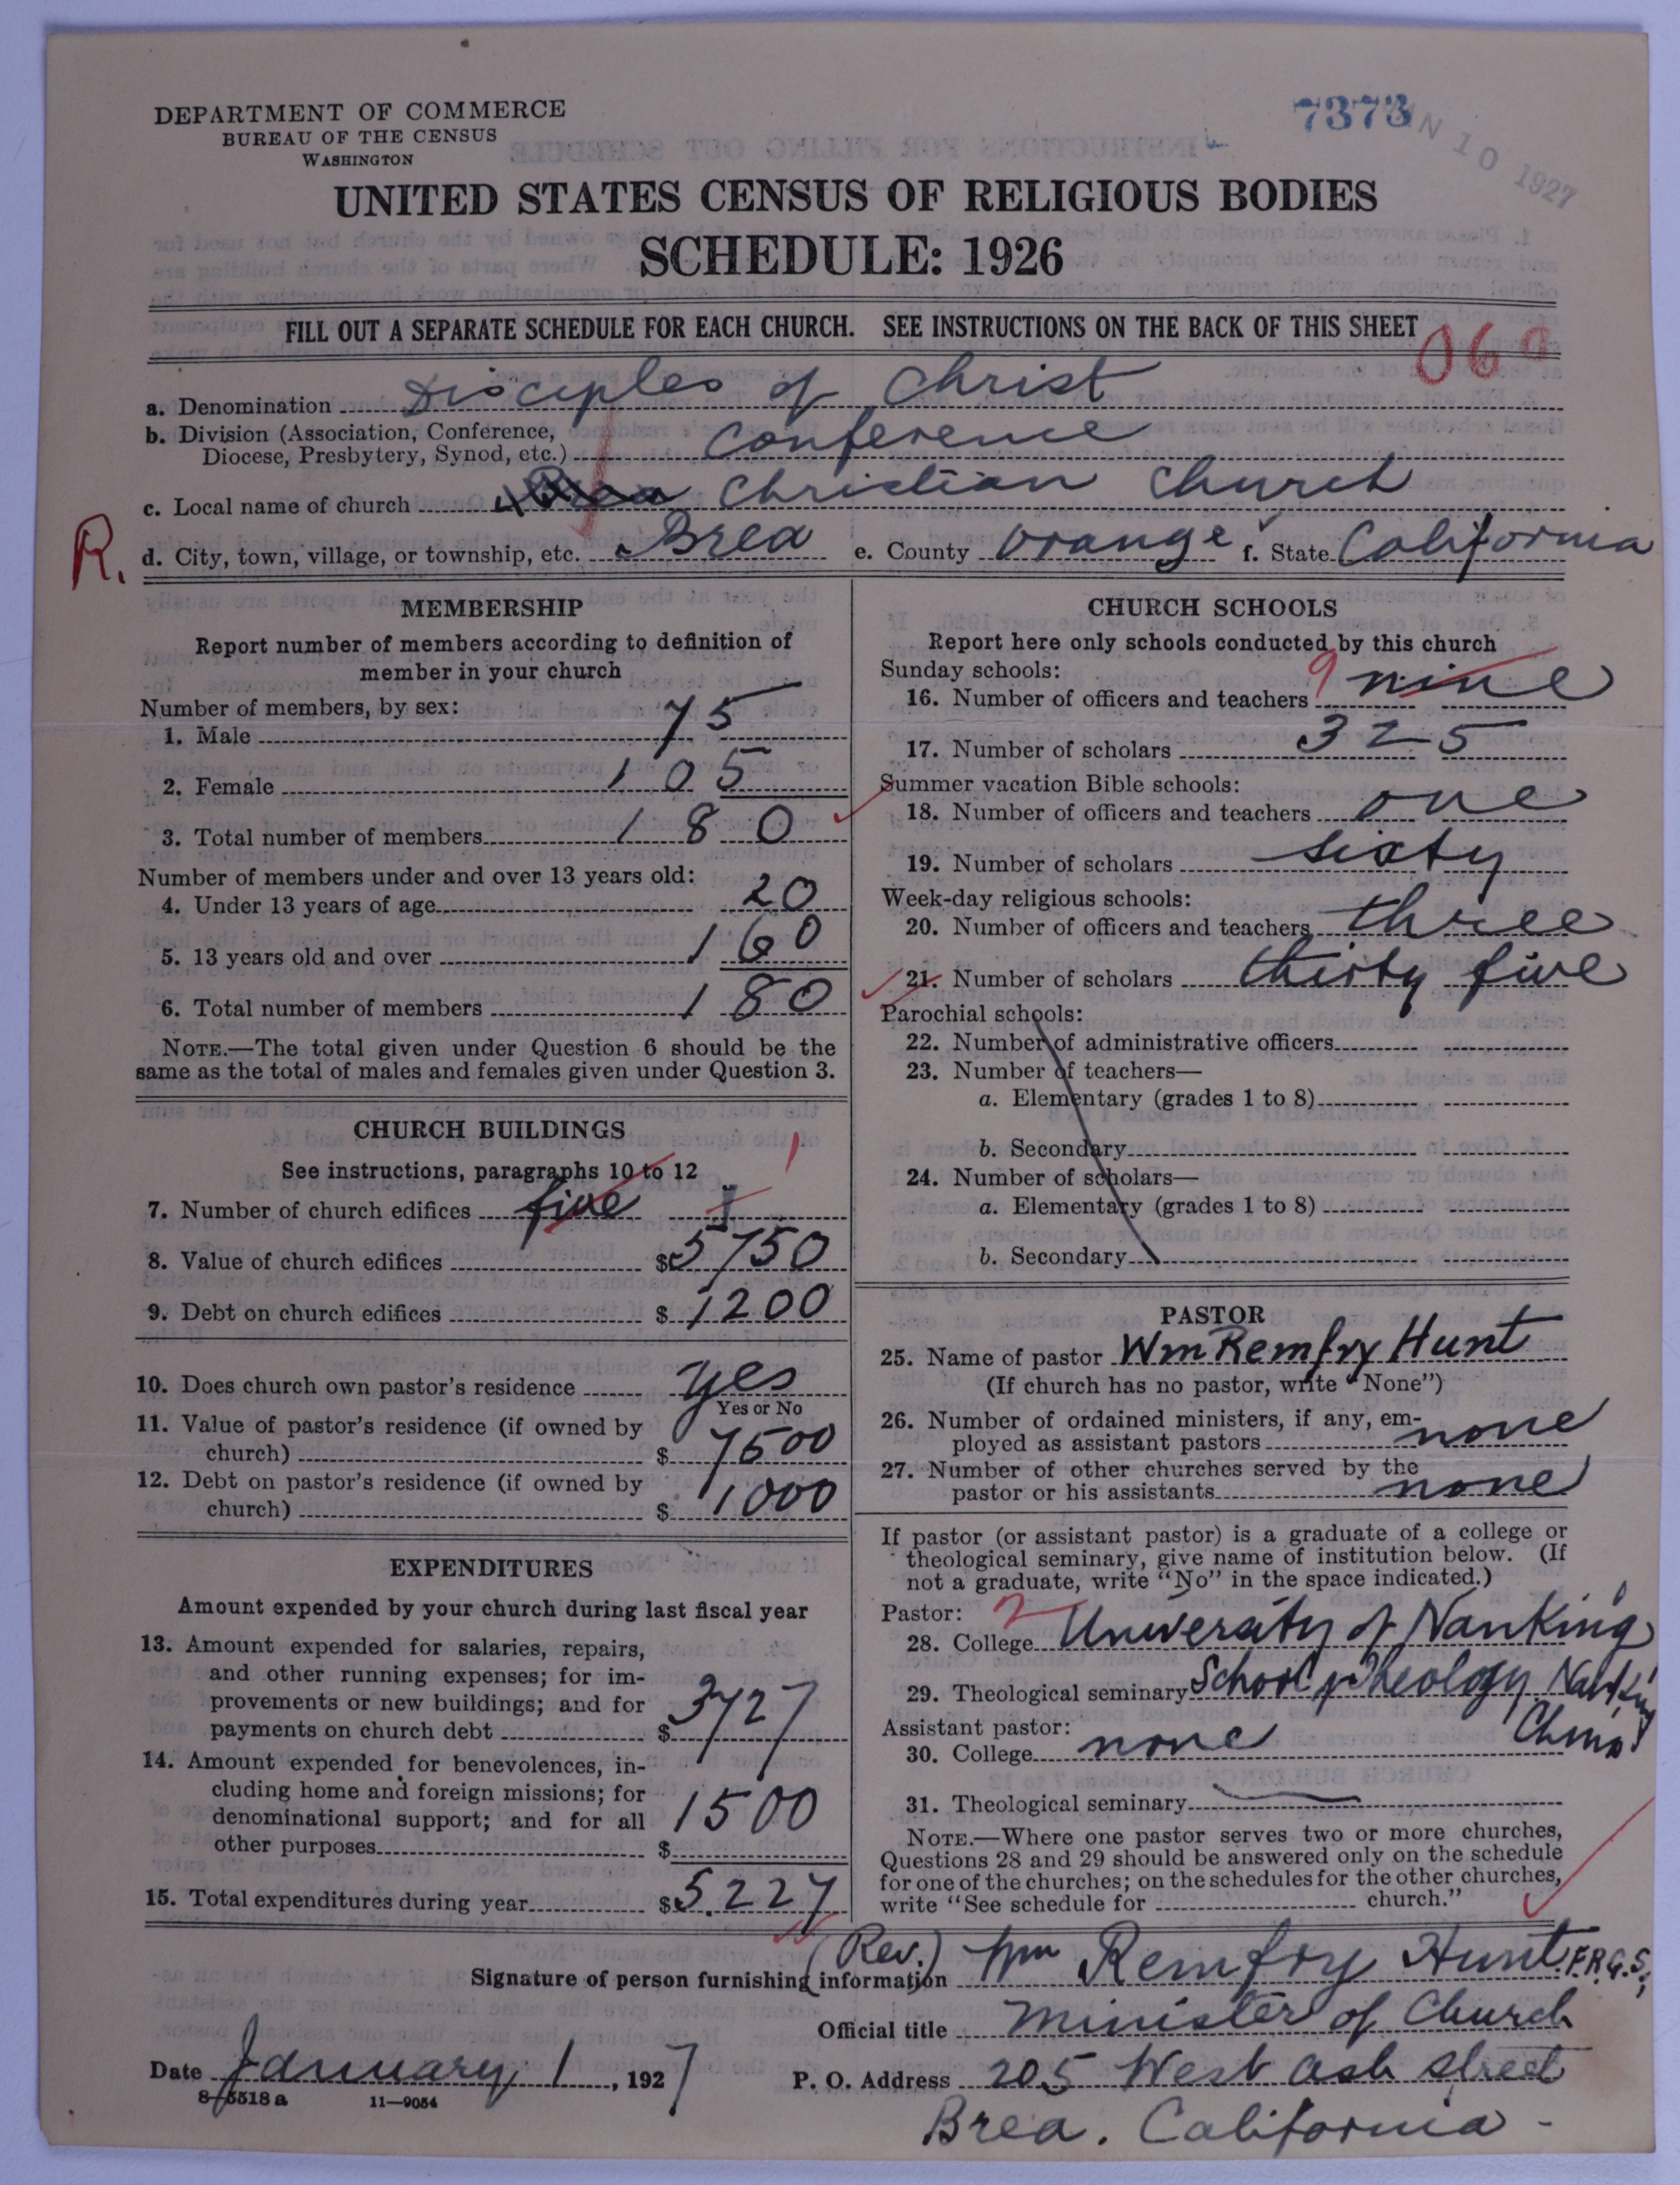 DEPARTMENT OF COMMERCE
BUREAU OF THE CENSUS
WASHINGTON
7373
N 10 1927
UNITED STATES CENSUS OF RELIGIOUS BODIES
SCHEDULE: 1926
FILL OUT A SEPARATE SCHEDULE FOR EACH CHURCH. SEE INSTRUCTIONS ON THE BACK OF THIS SHEET
060
a. Denomination Disciples of Christ
b. Division (Association, Conference,
Diocese, Presbytery, Synod, etc.) Conference
c. Local name of church Brea Christian Church
R.
d. City, town, village, or township, etc. Brea e. County Orange f. State California
MEMBERSHIP
Report number of members according to definition of
member in your church
Number of members, by sex:
1. Male 75
2. Female 105
3. Total number of members 180
Number of members under and over 13 years old:
4. Under 13 years of age 20
5. 13 years old and over 160
6. Total number of members 180
NOTE.—The total given under Question 6 should be the
same as the total of males and females given under Question 3.
CHURCH BUILDINGS
See instructions, paragraphs 10 to 12
1
7. Number of church edifices five 1
8. Value of church edifices $5750
9. Debt on church edifices $1200
10. Does church own pastor's residence yes
Yes or No
11. Value of pastor's residence (if owned by
church) $7500
12. Debt on pastor's residence (if owned by
church) $1000
EXPENDITURES
Amount expended by your church during last fiscal year
13. Amount expended for salaries, repairs,
and other running expenses; for im-
provements or new buildings; and for
payments on church debt $3727
14. Amount expended for benevolences, in-
cluding home and foreign missions; for
denominational support; and for all
other purposes $1500
15. Total expenditures during year $5.227
CHURCH SCHOOLS
Report here only schools conducted by this church
Sunday schools:
16. Number of officers and teachers 9 nine
17. Number of scholars 325
Summer vacation Bible schools:
18. Number of officers and teachers one
19. Number of scholars sixty
Week-day religious schools:
20. Number of officers and teachers three
21. Number of scholars thirty five
Parochial schools:
22. Number of administrative officers
23. Number of teachers—
a. Elementary (grades 1 to 8)
b. Secondary
24. Number of scholars—
a. Elementary (grades 1 to 8)
b. Secondary
PASTOR
25. Name of pastor Wm Remfry Hunt
(If church has no pastor, write "None")
26. Number of ordained ministers, if any, em-
ployed as assistant pastors none
27. Number of other churches served by the
pastor or his assistants none
If pastor (or assistant pastor) is a graduate of a college or
theological seminary, give name of institution below. (If
not a graduate, write "No" in the space indicated.)
Pastor: 2
28. College University of NanKing
29. Theological seminary School of Theology NanKing
China
Assistant pastor:
30. College none
31. Theological seminary
NOTE.—Where one pastor serves two or more churches,
Questions 28 and 29 should be answered only on the schedule
for one of the churches; on the schedules for the other churches,
write "See schedule for church."
Signature of person furnishing information (Rev.) Wm Remfry Hunt. F.R.G.S;
Official title Minister of Church
Date January 1, 1927
P. O. Address 205 West Ash Street
8-5518 a 11—9054
Brea. California -